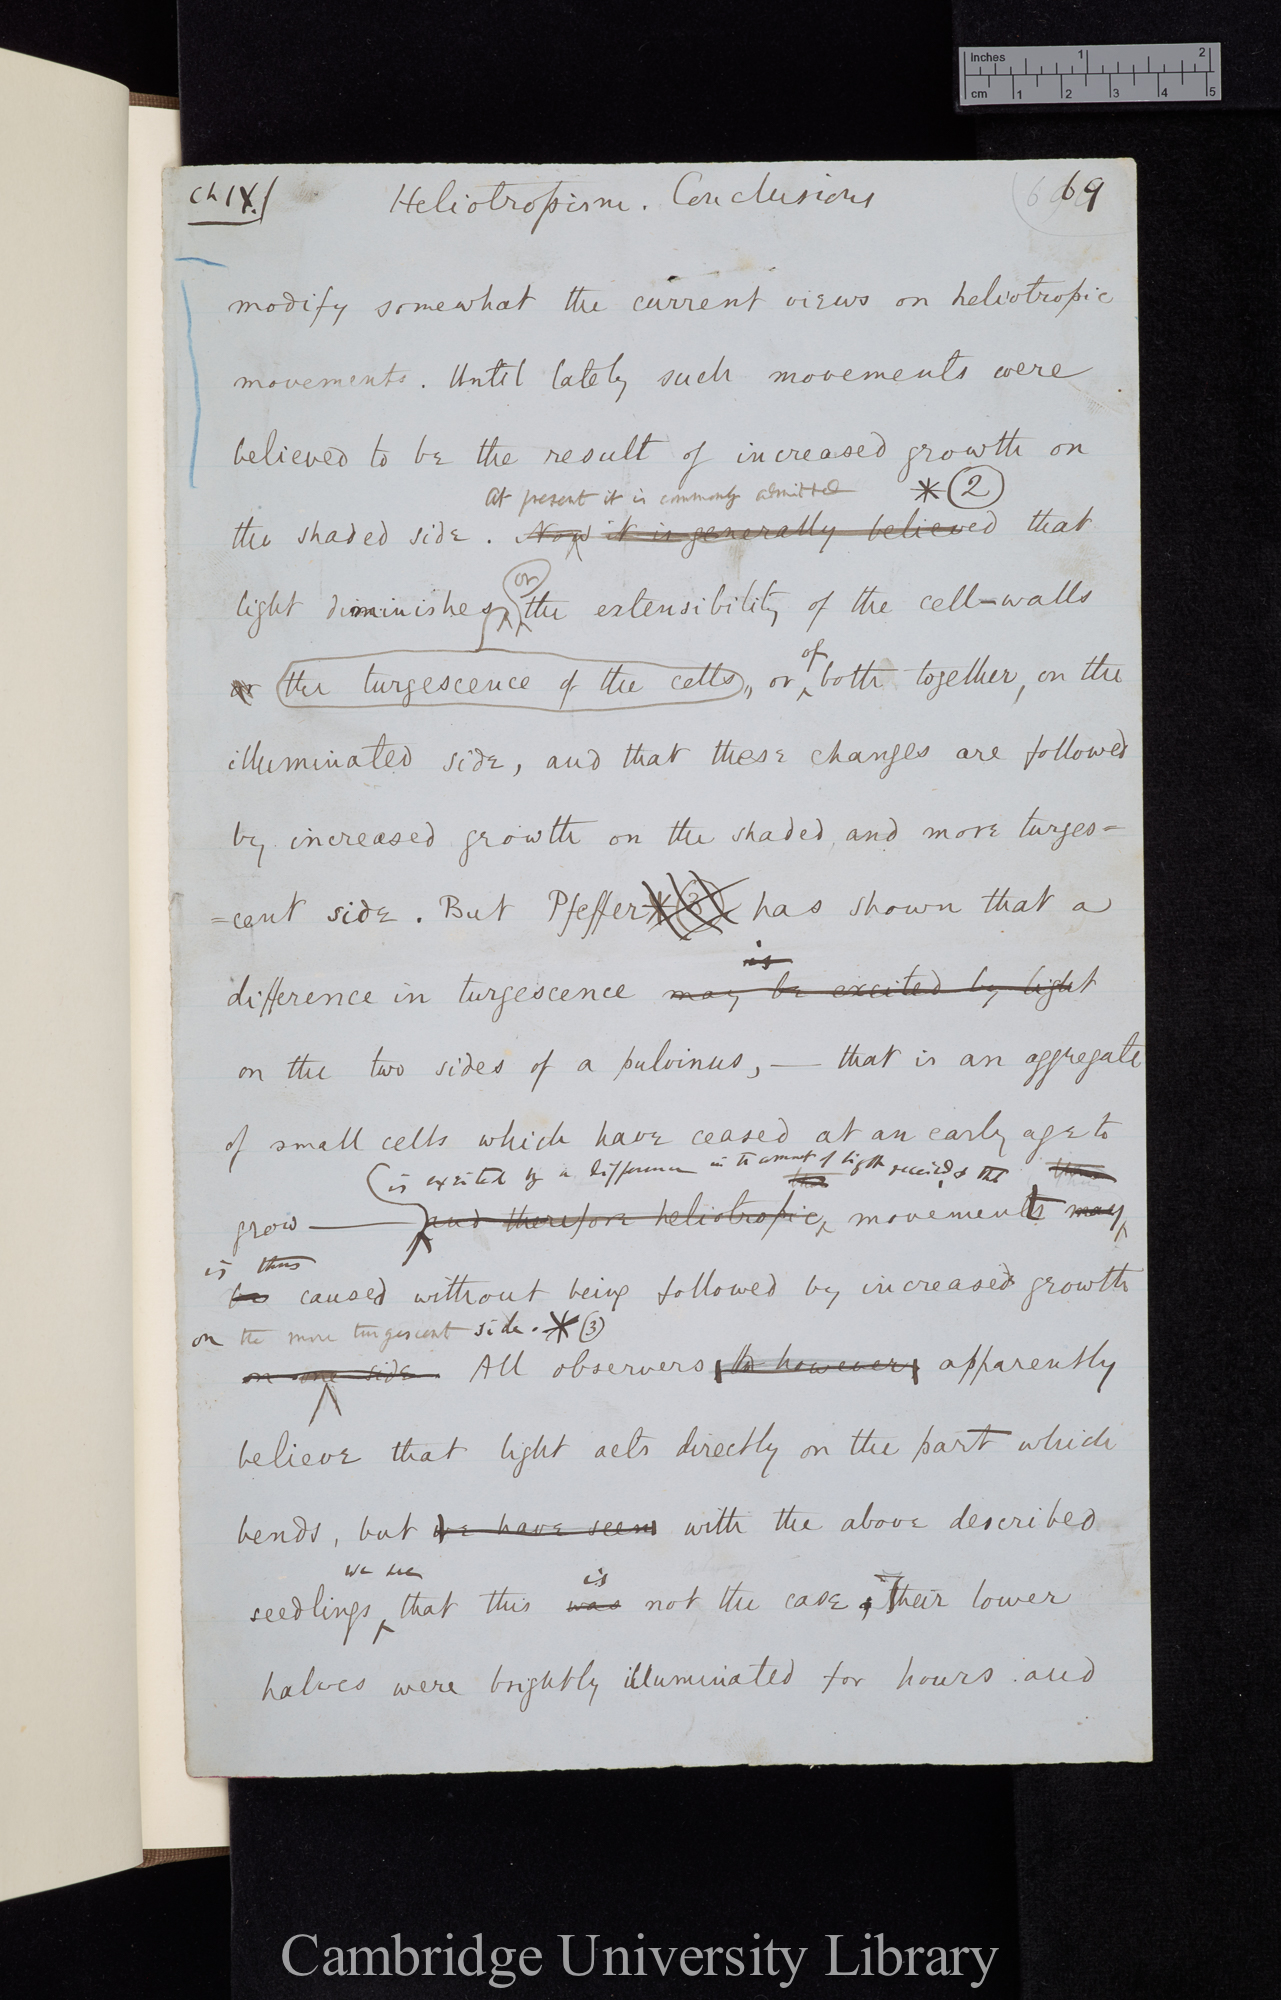 Inches 1 2
cm 1 2 3 4 5
Ch IX.
Heliotropism. Conclusions
69
modify somewhat the current views on heliotropic
movements. Until lately such movements were
believed to be the result of increased growth on
At present it is commonly admitted * 2
the shaded side. Now it is generally believed that
or
light diminishes the extensibility of the cell-walls
of
or the turgescence of the cells, or both together, on the
illuminated side, and that these changes are followed
by increased growth on the shaded and more turges=
=cent side. But Pfeffer * 3 has shown that a
is
difference in turgescence may be excited by light
on the two sides of a pulvinus, — that is an aggregate
of small cells which have ceased at an early age to
is excited by a difference in the amount of light received & the
grow — and therefore heliotropic movements may
is thus
be caused without being followed by increased growth
on the more turgescent side. * 3
on one side. All observers however apparently
believe that light acts directly on the part which
bends, but we have seen with the above described
we see is
seedlings, that this was not the case. Their lower
halves were brightly illuminated for hours and
Cambridge University Library